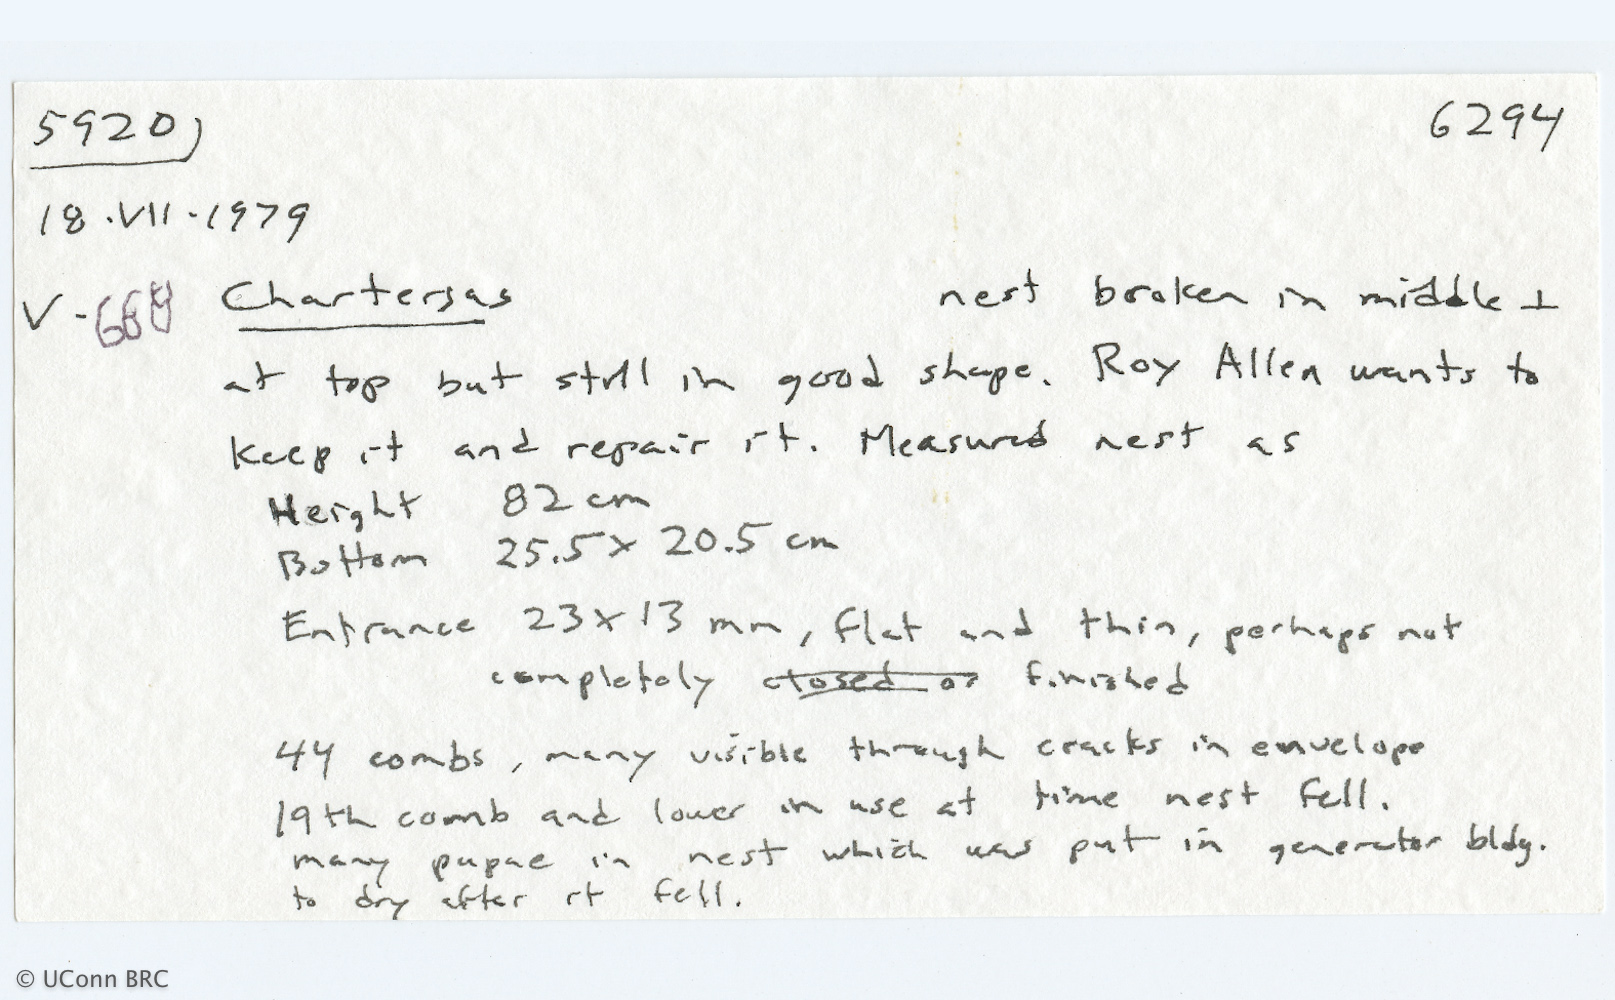 5920)
6294
18.VII.1979
V-669 Chartergus nest broken in middle ⊥
at top but still in good shape. Roy Allen wants to
keep it and repair it. Measured nest as
Height 82 cm
Bottom 25.5 x 20.5 cm
Entrance 23 x 13 mm, flat and thin, perhaps not
completely closed or finished
44 combs, many visible through cracks in envelope
19th comb and lower in use at time nest fell.
many pupae in nest which was put in generator bldg.
to dry after it fell.
© UConn BRC